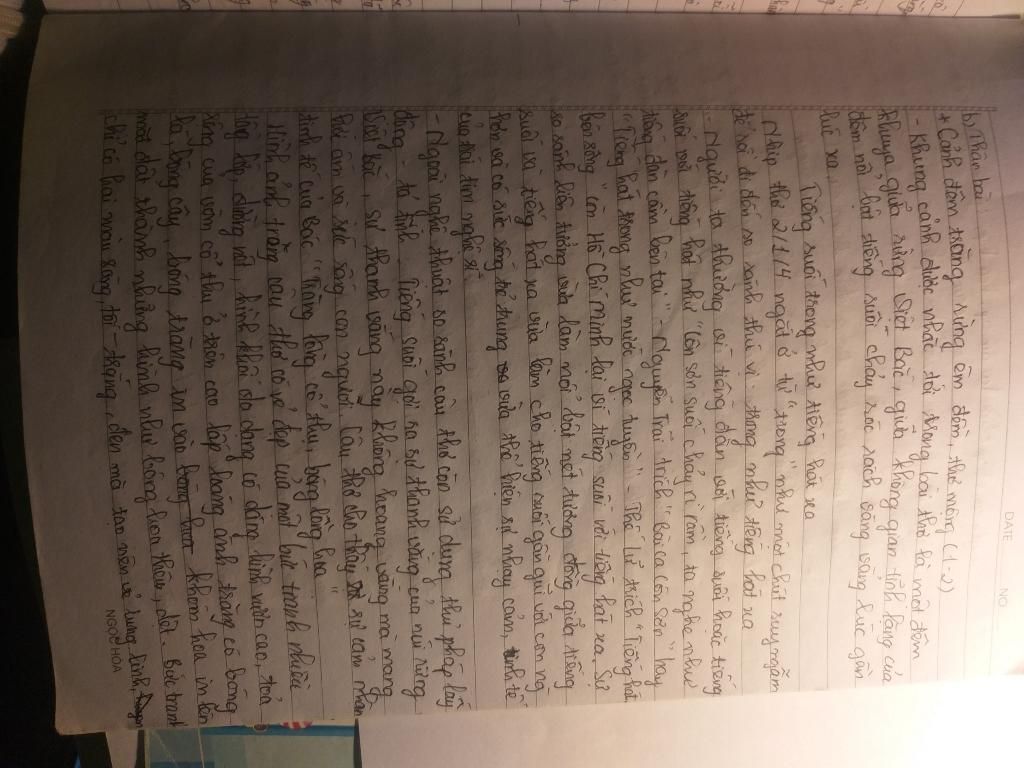 DATE
NO
b) Thân bài:
+ Cảnh đêm trăng rừng êm đềm, thơ mộng (1-2)
- Khung cảnh được nhắc tới trong bài thơ là một đêm
khuya giữa rừng Việt Bắc, giữa không gian tĩnh lặng của
đêm nổi bật tiếng suối chảy róc rách vang vọng lúc gần
lúc xa.
Tiếng suối trong như tiếng hát xa
Nhịp thơ 2/1/4 ngắt ở từ "trong" như một chút suy ngẫm
để rồi đi đến so sánh thú vị: trong như tiếng hát xa
- Người ta thường ví tiếng đàn với tiếng suối hoặc tiếng
suối với tiếng hát như "Côn Sơn suối chảy rì rầm, ta nghe như
tiếng đàn cầm bên tai" - Nguyễn Trãi trích "Bài ca Côn Sơn" hay
"Tiếng hát trong như nước ngọc tuyền" - Thế Lữ trích "Tiếng hát
bên sông" còn Hồ Chí Minh lại ví tiếng suối với tiếng hát xa. Sự
so sánh liên tưởng vừa làm nổi bật nét tương đồng giữa tiếng
suối và tiếng hát xa vừa làm cho tiếng suối gần gũi với con ng
hơn và có sức sống trẻ trung vừa thể hiện sự nhạy cảm, tinh tế
của trái tim nghệ sĩ
- Ngoài nghệ thuật so sánh câu thơ còn sử dụng thủ pháp lấy
động tả tĩnh. Tiếng suối gợi ra sự thanh vắng của núi rừng
Việt Bắc, sự thanh vắng này không hoang vắng mà mang
hơi ấm và sức sống con người. Câu thơ cho thấy sự cảm nhận
tinh tế của Bác "Trăng lồng cổ thụ, bóng lồng hoa"
Hình ảnh trăng câu thơ có vẻ đẹp của một bức tranh nhiều
tầng lớp, đường nét, hình khối đa dạng có dáng hình vươn cao, toả
rộng của vòm cổ thụ ở trên cao lấp loáng ánh trăng có bóng
lá, bóng cây, bóng trăng in vào khóm hoa in lên
mặt đất thành những hình như bông hoa thêu, dệt. Bức tranh
chỉ có hai màu sáng, tối - trắng, đen mà tạo nên vẻ lung linh,
NGOC HOA